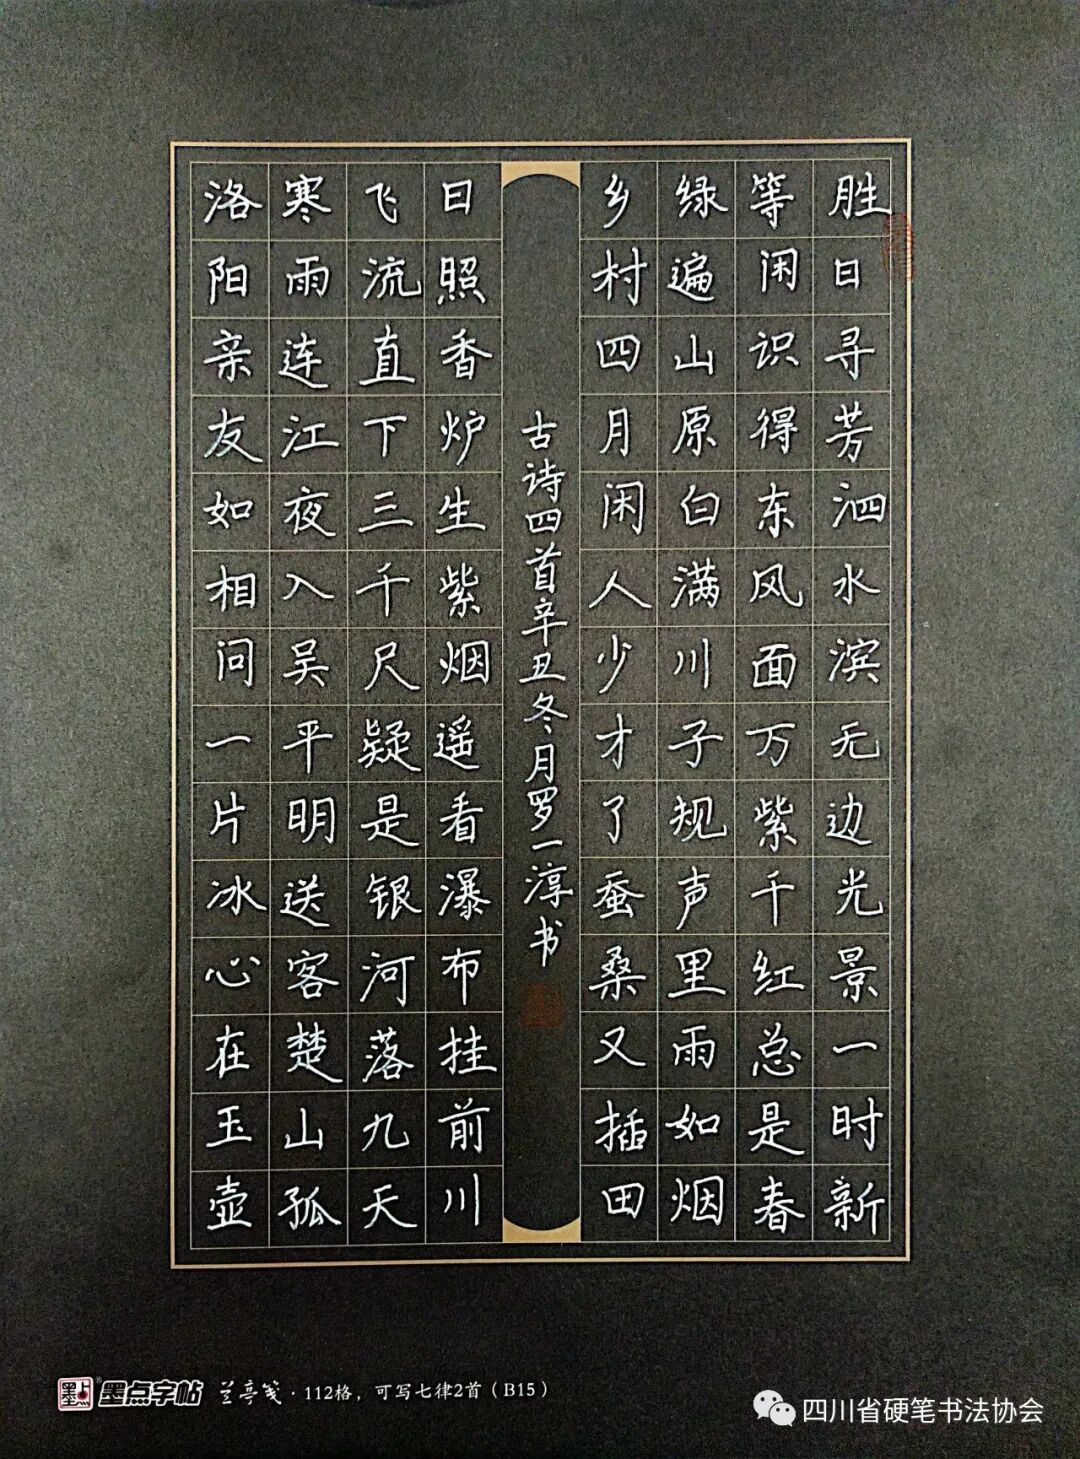 胜日寻芳泗水滨无边光景一时新
等闲识得东风面万紫千红总是春
绿遍山原白满川子规声里雨如烟
乡村四月闲人少才了蚕桑又插田
古诗四首辛丑冬月罗一淳书
日照香炉生紫烟遥看瀑布挂前川
飞流直下三千尺疑是银河落九天
寒雨连江夜入吴平明送客楚山孤
洛阳亲友如相问一片冰心在玉壶
墨点 墨点字帖 兰亭笺·112格，可写七律2首（B15）
四川省硬笔书法协会